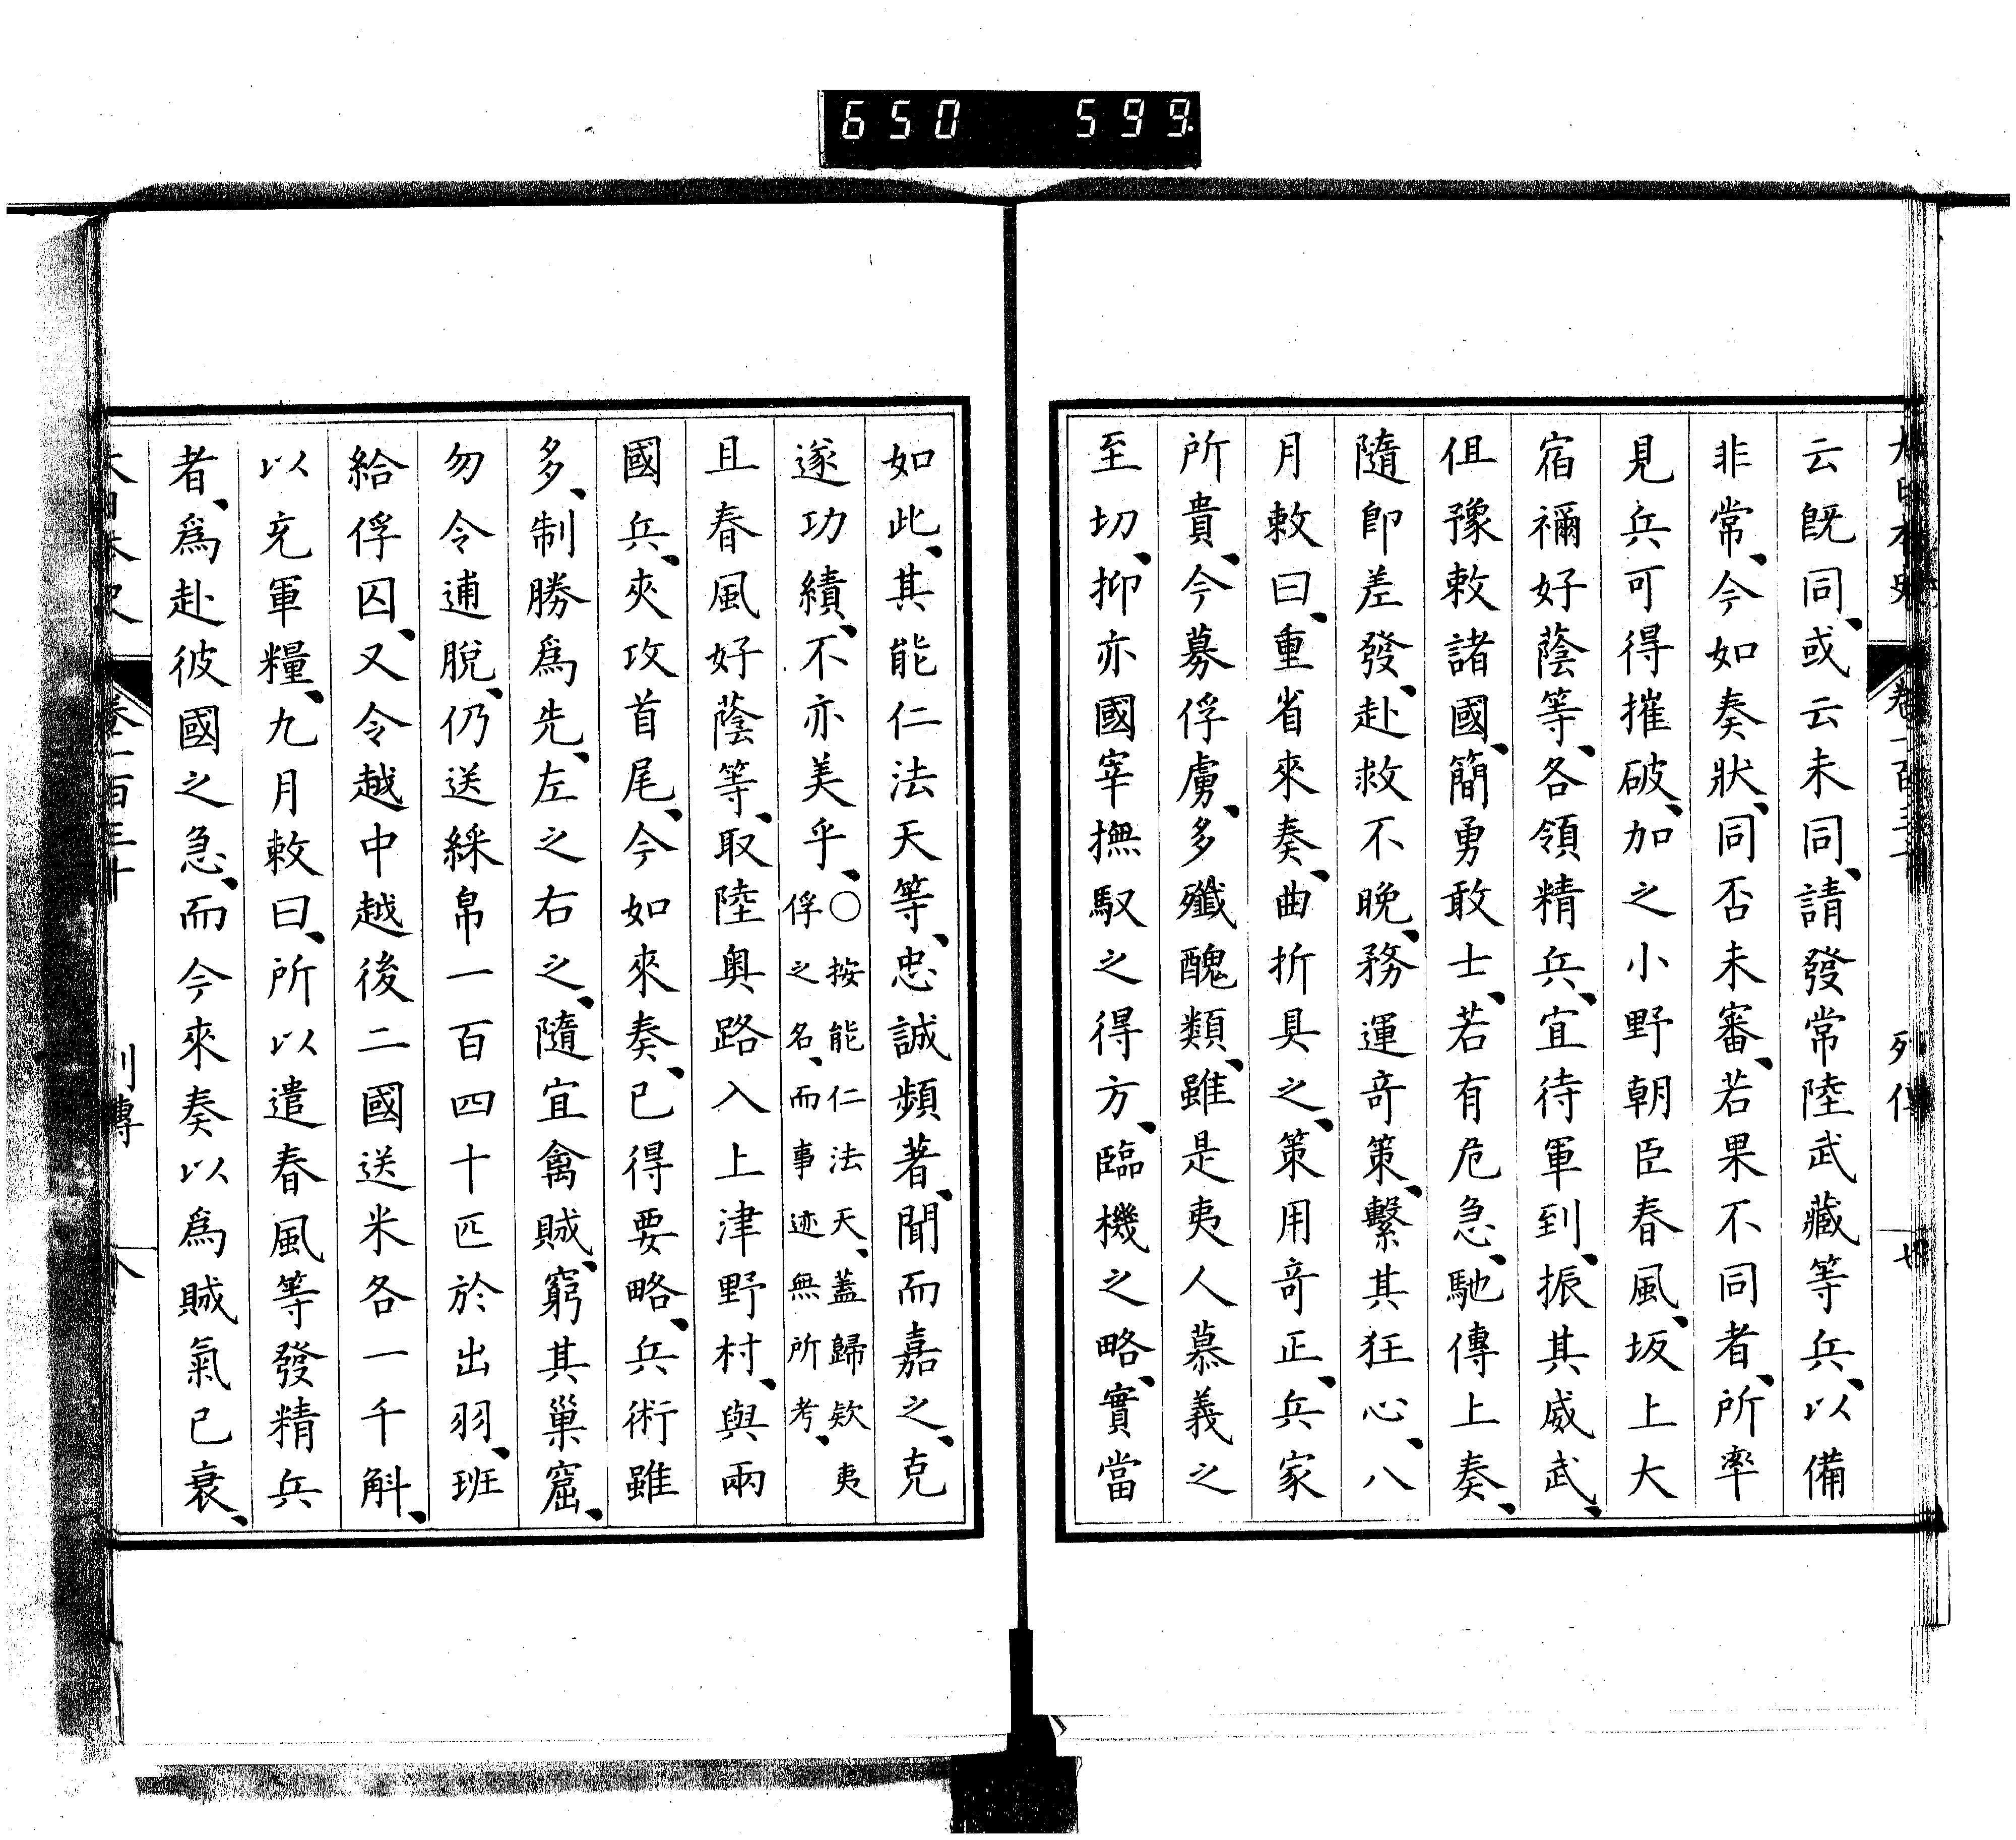 650 599.
云既同、或云未同、請發常陸武藏等兵、以備
非常、今如奏狀、同否未審、若果不同者、所率
見兵可得摧破、加之小野朝臣春風、坂上大
宿禰好蔭等、各領精兵、宜待軍到、振其威武、
但豫敕諸國、簡勇敢士、若有危急、馳傳上奏、
隨卽差發、赴救不晚、務運奇策、繫其狂心、八
月敕曰、重省來奏、曲折具之、策用奇正、兵家
所貴、今募俘虜、多殲醜類、雖是夷人慕義之
至切、抑亦國宰撫馭之得方、臨機之略、實當
如此、其能仁法天等、忠誠頻著、聞而嘉之、克
遂功績、不亦美乎、○按能仁法天、蓋歸欵夷俘之名、而事迹無所考、
且春風好蔭等、取陸奧路入上津野村、與兩
國兵、夾攻首尾、今如來奏、已得要略、兵術雖
多、制勝爲先、左之右之、隨宜禽賊、窮其巢窟、
勿令逋脫、仍送綵帛一百四十匹於出羽、班
給俘囚、又令越中越後二國送米各一千斛、
以充軍糧、九月敕曰、所以遣春風等發精兵
者、爲赴彼國之急、而今來奏以爲賊氣已衰、
大日本史 卷二百三十 列傳 八